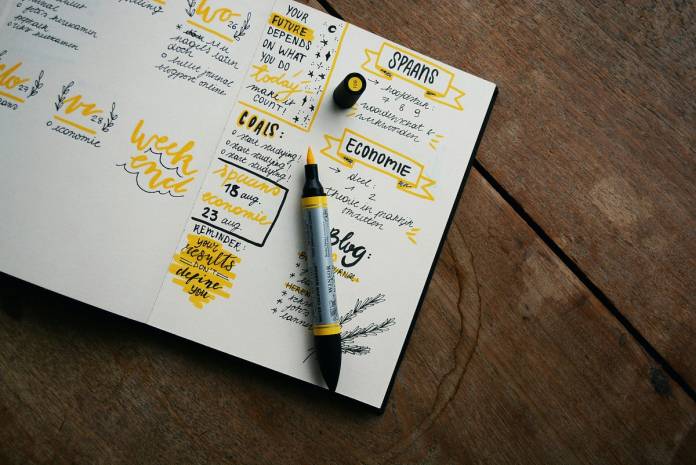 herexamen
wo 26
nagels laten
doen
bullet journal
blogpost online
27
vr 28
economie
week
end
YOUR
FUTURE
DEPENDS
ON WHAT
YOU DO
today
make it
COUNT!
GOALS:
o start studying!
o start studying!
o start studying!
spaans
18 aug.
economie
23 aug.
REMINDER:
your
results
DON'T
define
you
SPAANS
→ hoofdstuk:
7 8 9
woordenschat &
werkwoorden
ECONOMIE
→ deel:
1 2
theorie in praktijk
omzetten
Blog:
WINSOR